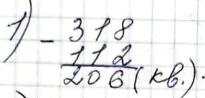 1) - 318
112
206 (кв.).